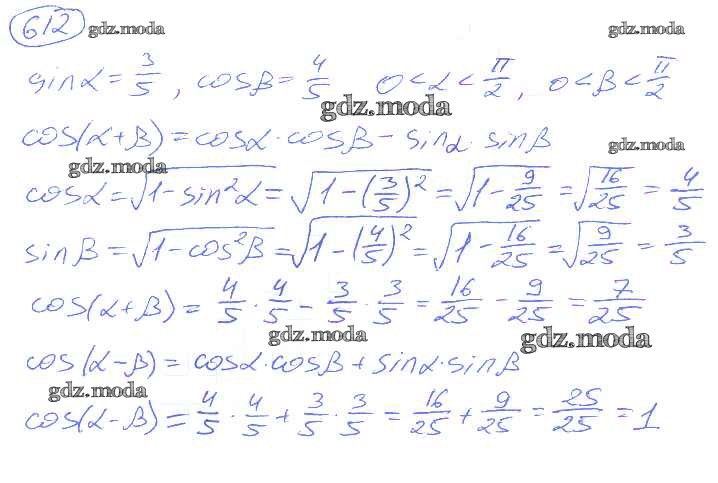 612 gdz.moda gdz.moda
sinα = 3/5, cosβ = 4/5 0<α<π/2, 0<β<π/2
gdz.moda
cos(α+β)=cosα·cosβ-sinα·sinβ gdz.moda
gdz.moda
cosα=√(1-sin²α)=√(1-(3/5)²)=√(1-9/25)=√(16/25)=4/5
sinβ=√(1-cos²β)=√(1-(4/5)²)=√(1-16/25)=√(9/25)=3/5
cos(α+β)=4/5·4/5-3/5·3/5=16/25-9/25=7/25
gdz.moda gdz.moda
cos(α-β)=cosα·cosβ+sinα·sinβ
gdz.moda
cos(α-β)=4/5·4/5+3/5·3/5=16/25+9/25=25/25=1